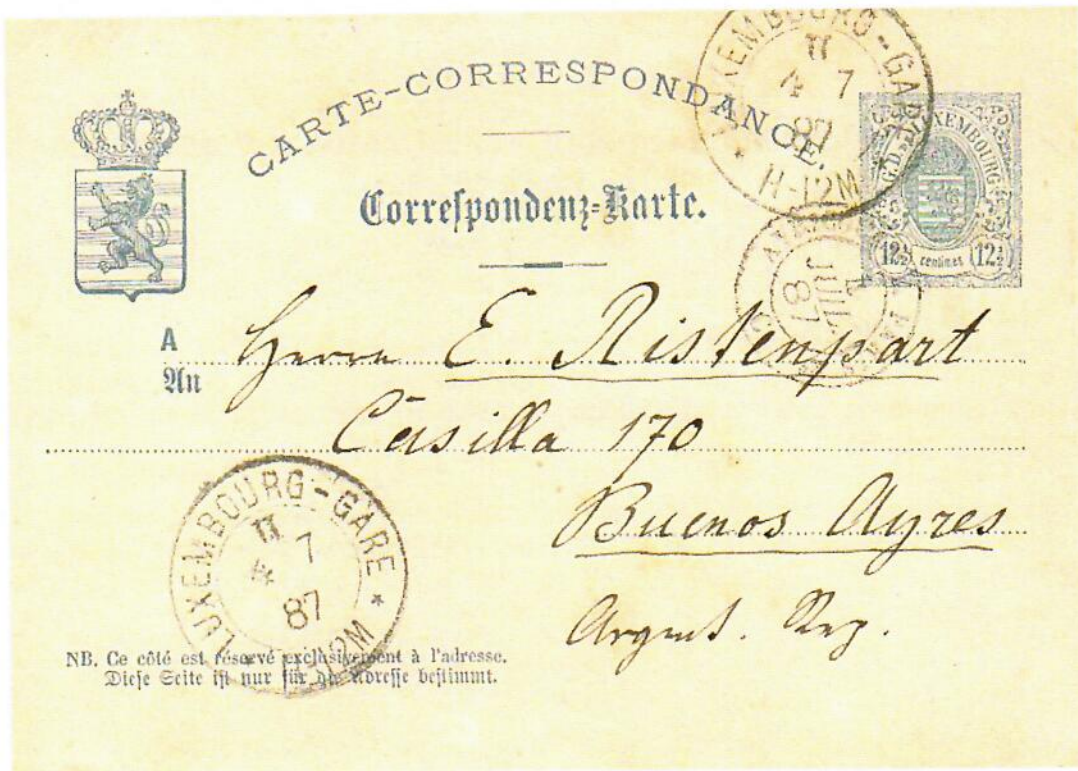 CARTE-CORRESPONDANCE.
Correspondenz-Karte.
LUXEMBOURG-GARE
4 7
87
* 11-12M
G.D. DE LUXEMBOURG
12½ centimes 12½
JUIL
87
A
An
Herrn E. Ristenpart
Casilla 170
Buenos Ayres
Argent. Rep.
LUXEMBOURG-GARE *
4 7
87
11-12M
NB. Ce côté est réservé exclusivement à l'adresse.
Diese Seite ist nur für die Adresse bestimmt.